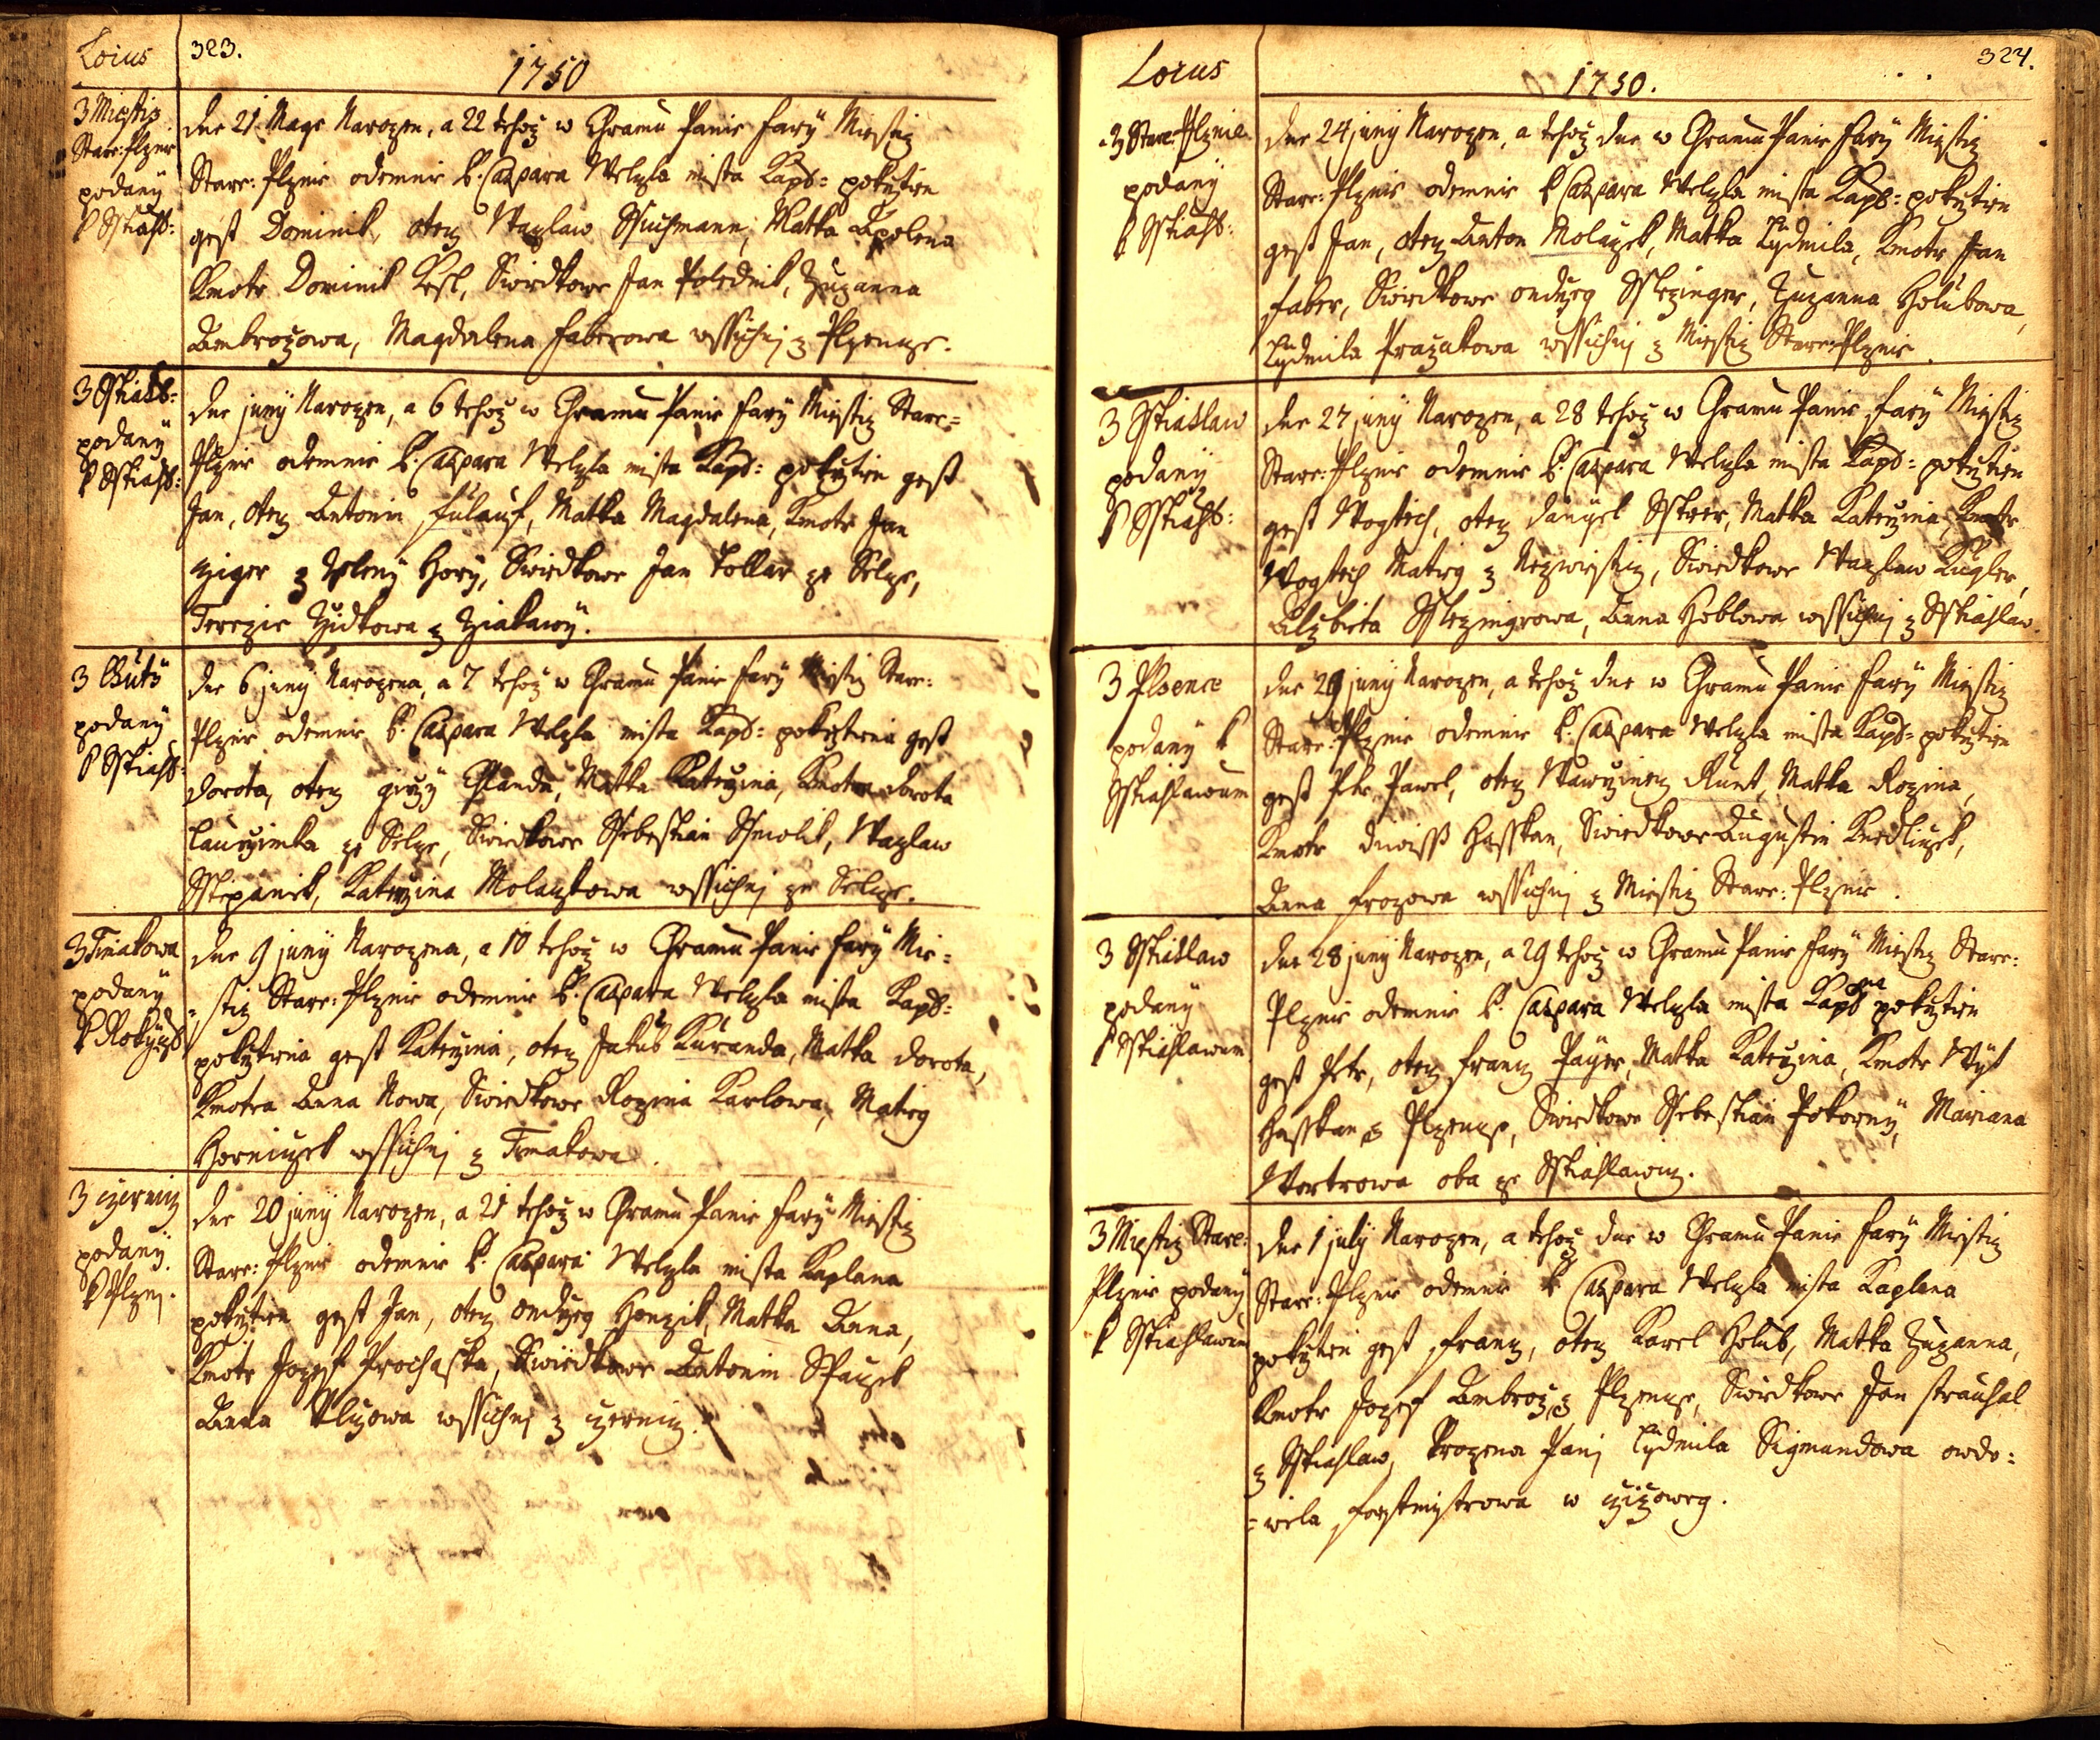 Locus
323.
1750
z Miestis
Stare: Plzni
podaný
k Sstiahl:
dne 21 Mage Narozen, a 22 tehož w Chramu Panie Farÿ Miestiz
Stare: Plznie odemnie k: Caspara Welzla mista Kapl: pokrztien
gest Dominik, otez Wazlaw Matka Apolena
Kmotr Dominik Swiedkowe Jan Polednik, Zuzanna
Ambrozowa, Magdalena Faberowa wssichnj z Plzenze.
z Sstiahl:
podaný
k Sstiahl:
dne junÿ Narozen, a 6 tehož w Chramu Panie Farÿ Miestiz Stare=
Plznie odemnie k: Caspara Welzla mista Kapl: pokrztien gest
Jan, otez Antonin Fulauf, Matka Magdalena, Kmotr Jan
z Zeleny Horÿ, Swiedkowe Jan Tollar ze Selze,
Terezie Židkowa z
z Chutÿ
podaný
k Sstiahl:
dne 6 junÿ Narozena, a 7 tehož w Chramu Panie Farÿ Miestiz Stare:
Plznie odemnie k: Caspara Welzla mista Kapl: pokrztiena gest
Dorota, otez Girzÿ Matka Katerzina, Kmotra Dorota
ze Selze, Swiedkowe Ssebestian Smolik, Wazlaw
Sstepanek, Katerzina Molaczkowa wssichnj ze Selze.
z Timakowa
podaný
k Rokÿzs
dne 9 junÿ Narozena, a 10 tehož w Chramu Panie Farÿ Mie=
=stiz Stare: Plznie odemnie k: Caspara Welzla mista Kapl:
pokrztiena gest Katerzina, otez Jakub Kuranda, Matka Dorota,
Kmotra Anna Nowa, Swiedkowe Rozina Karlowa, Mateg
Horniczek wssichnj z Timakowa.
z czerniz
podaný
k Plznj.
dne 20 junÿ Narozen, a 21 tehož w Chramu Panie Farÿ Miestiz
Stare: Plznie odemnie k: Caspara Welzla mista Kaplana
pokrztien gest Jan, otez Ondrzeg Honzik, Matka Anna,
Kmotr Jozef Prochaska, Swiedkowe Antonin Spaczek
Anna wssichnj z czerniz.
Locus
324.
1750.
z Stare: Plznie
podaný
k Sstiahl:
dne 24 junÿ Narozen, a tehož dne w Chramu Panie Farÿ Miestiz
Stare: Plznie odemnie k Caspara Welzla mista Kapl: pokrztien
gest Jan, otez Anton Molaczek, Matka Lydmila, Kmotr Jan
Faber, Swiedkowe Ondrzeg Sslezinger, Zuzanna Holubowa,
Lydmila Prazakowa wssichnj z Miestiz Stare: Plznie.
z Sstiahlaw
podaný
k Sstiahl:
dne 27 junÿ Narozen, a 28 tehož w Chramu Panie Farÿ Miestiz
Stare: Plznie odemnie k: Caspara Welzla mista Kapl: pokrztien
gest Wogtiech, otez Danyel Matka Katerzina, Kmotr
Wogtiech Mateg z Nezwiestiz, Swiedkowe Wazlaw Kugler,
Alzbieta Sslezingrowa, Anna Hoblowa wssichnj z Sstiahlaw.
z Plzence
podaný k
Sstiahlawum
dne 29 junÿ Narozen, a tehož dne w Chramu Panie Farÿ Miestiz
Stare: Plznie odemnie k: Caspara Welzla mista Kapl: pokrztien
gest Petr Pawel, otez Wawrzinez Runt, Matka Rozina,
Kmotr Diwiss Hasskan, Swiedkowe Augustin Knedliczek,
Anna Frozowa wssichnj z Miestiz Stare: Plznie.
z Sstiahlaw
podaný
k Sstiahlawum
dne 28 junÿ Narozen, a 29 tehož w Chramu Panie Farÿ Miestiz Stare:
Plznie odemnie k: Caspara Welzla mista Kaplana pokrztien
gest Petr, otez Franz Paÿer, Matka Katerzina, Kmotr Wÿt
Hasskan z Plzenze, Swiedkowe Ssebestian Pokornÿ, Mariana
Wortrowa oba ze Sstiahlawiz.
z Miestiz Stare:
Plznie podaný
k Sstiahlawum
dne 1 julÿ Narozen, a tehož dne w Chramu Panie Farÿ Miestiz
Stare: Plznie odemnie k Caspara Welzla mista Kaplana
pokrztien gest Franz, otez Karel Holub, Matka Zuzanna,
Kmotr Jozef Ambroz z Plzenze, Swiedkowe Jan Strauhal
z Sstiahlaw, Urozena Panj Lydmila Sigmandowa owdo:
=wiela Forstmistrowa w